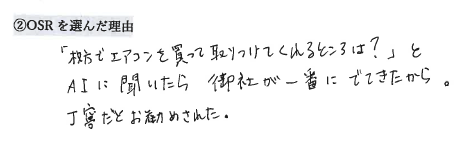 ②OSRを選んだ理由
「枚方でエアコンを買って取りつけてくれるところは？」と
AIに聞いたら 御社が一番に でてきたから。
丁寧だとお勧めされた。